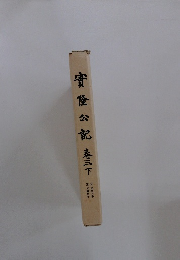 實隆公記 卷三下